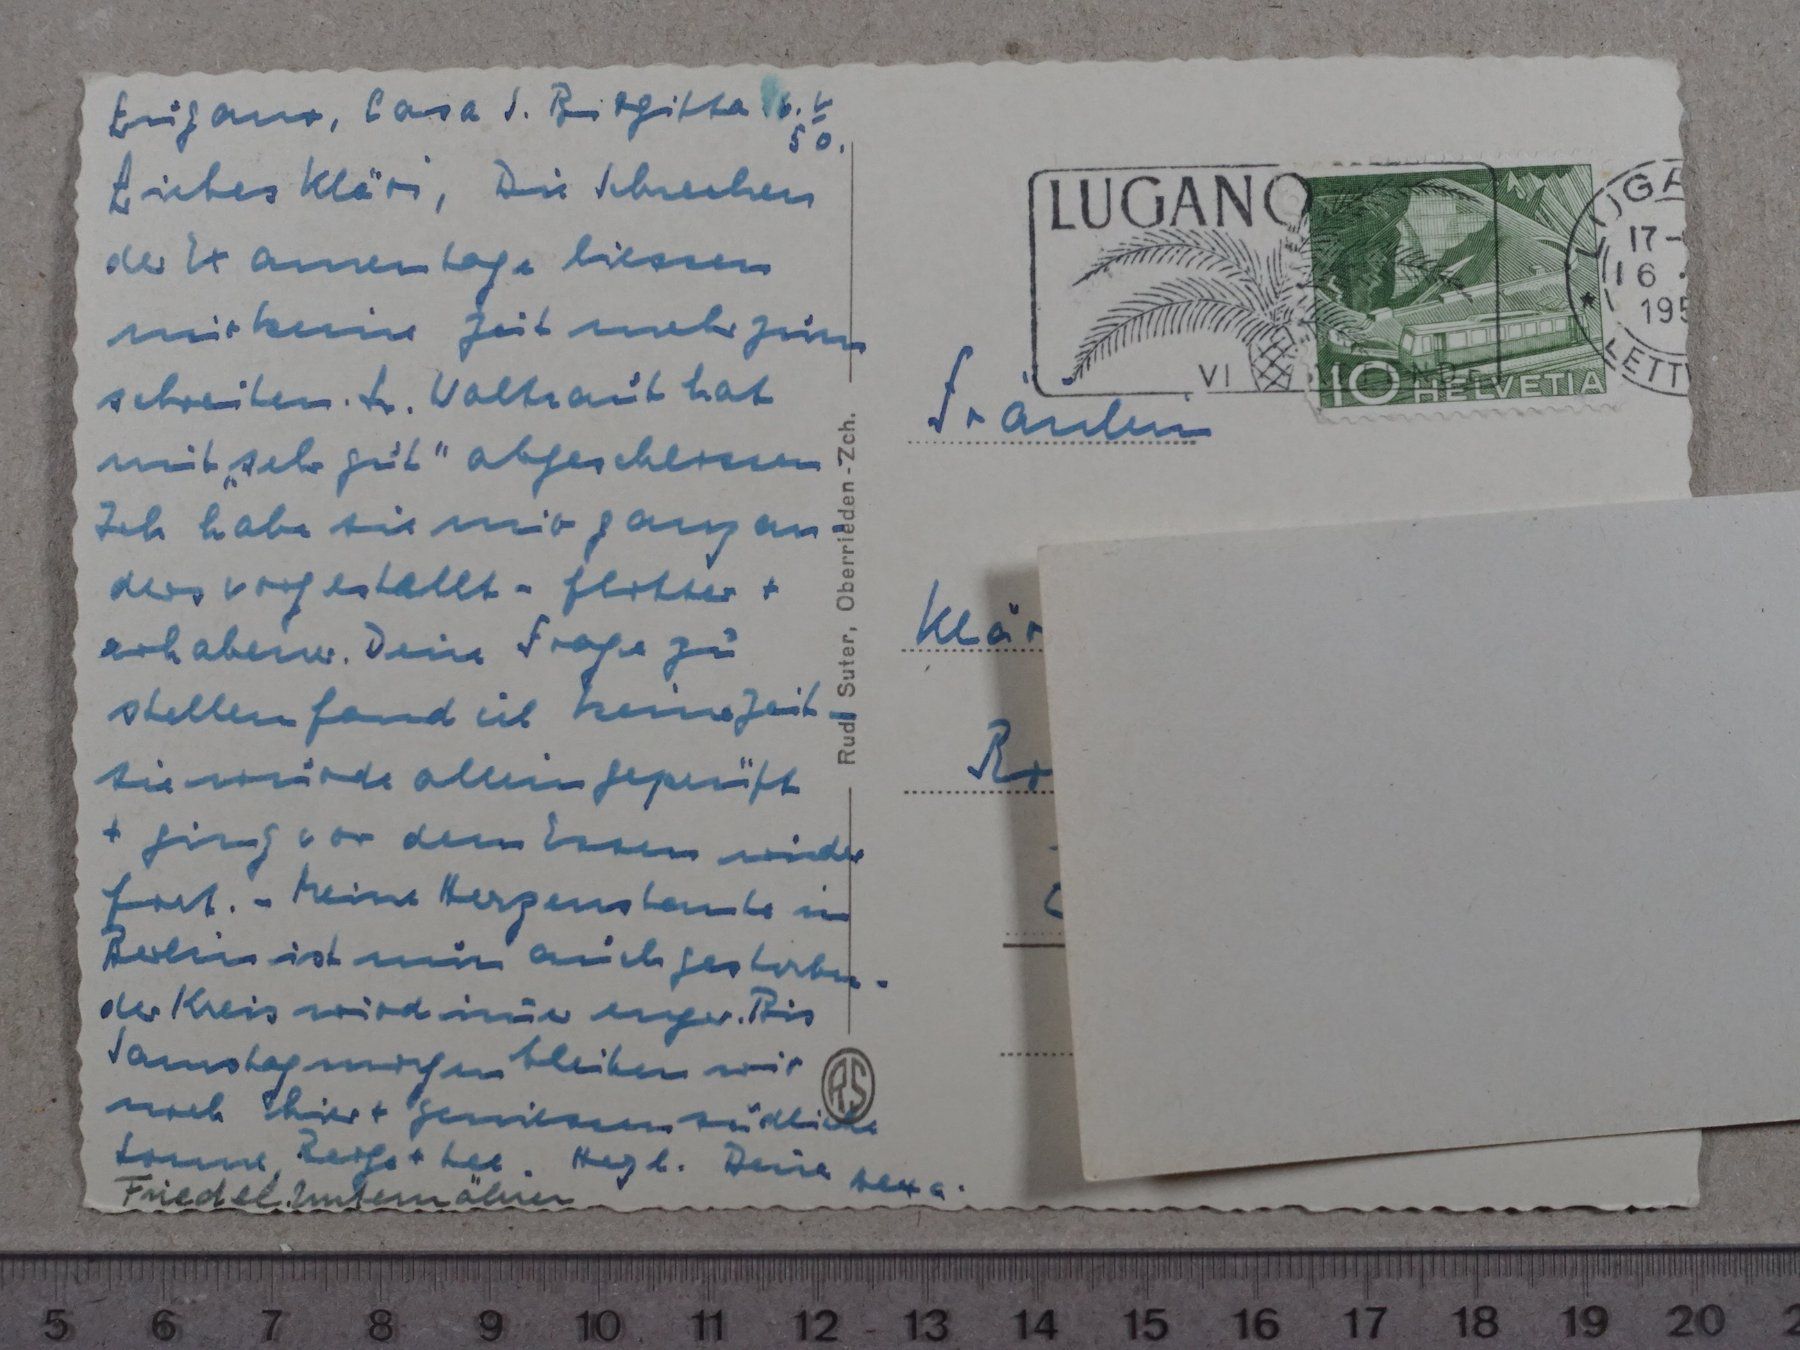 Lugano, Casa S. Birgitta 16. V
50.
Liebes Kläri, Die Schrecken
der Examentage liessen
mir keine Zeit mehr zum
schreiben. Sr. Waltraut hat
mit „sehr gut" abgeschlossen
Ich habe sie mir ganz an-
ders vorgestellt - flotter +
erhabener. Deine Frage zu
stellen fand ich keine Zeit -
sie wurde allein geprüft
+ ging vor dem Essen wieder
fort. - Meine Herzenstante in
Berlin ist nun auch gestorben -
der Kreis wird im̄er enger. Bis
Samstagmorgen bleiben wir
noch hier + geniessen südliche
Sonne, Berge + See. Herzl. Deine
Friedel Unternährer
Rud. Suter, Oberrieden-Zch.
RS
LUGANO
VI
10 HELVETIA
LUGA
17-
16
195
LETT
Fräulein
Klär
Ro
5 6 7 8 9 10 11 12 13 14 15 16 17 18 19 20 2